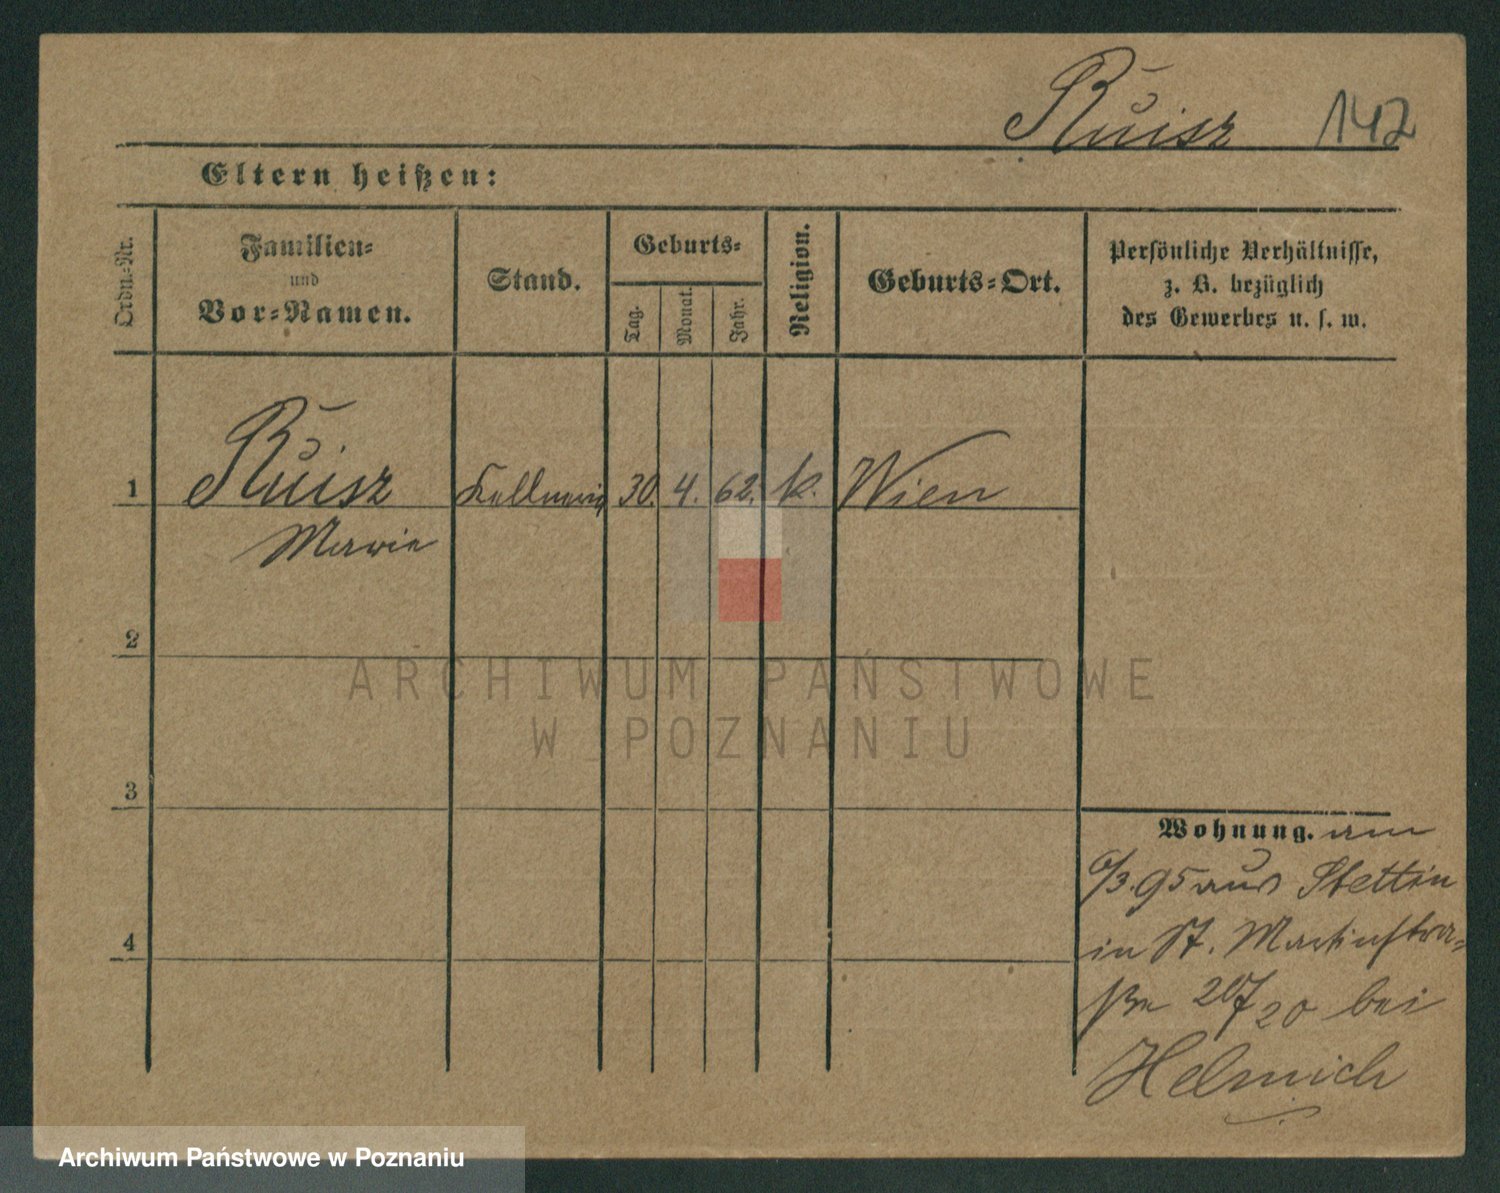 Ruisz 142
Eltern heißen:
Ordn.-Nr.
Familien-
und
Vor-Namen.
Stand.
Geburts-
Tag.
Monat.
Jahr.
Religion.
Geburts-Ort.
Persönliche Verhältnisse,
z. B. bezüglich
des Gewerbes u. s. w.
1 Ruisz Kellnerin 30. 4. 62. k. Wien
Marie
2
3
4
ARCHIWUM PAŃSTWOWE
W POZNANIU
Wohnung. am
6/3.95 aus Stettin
in St. Martinstra-
ße 20 bei
Helmich
Archiwum Państwowe w Poznaniu